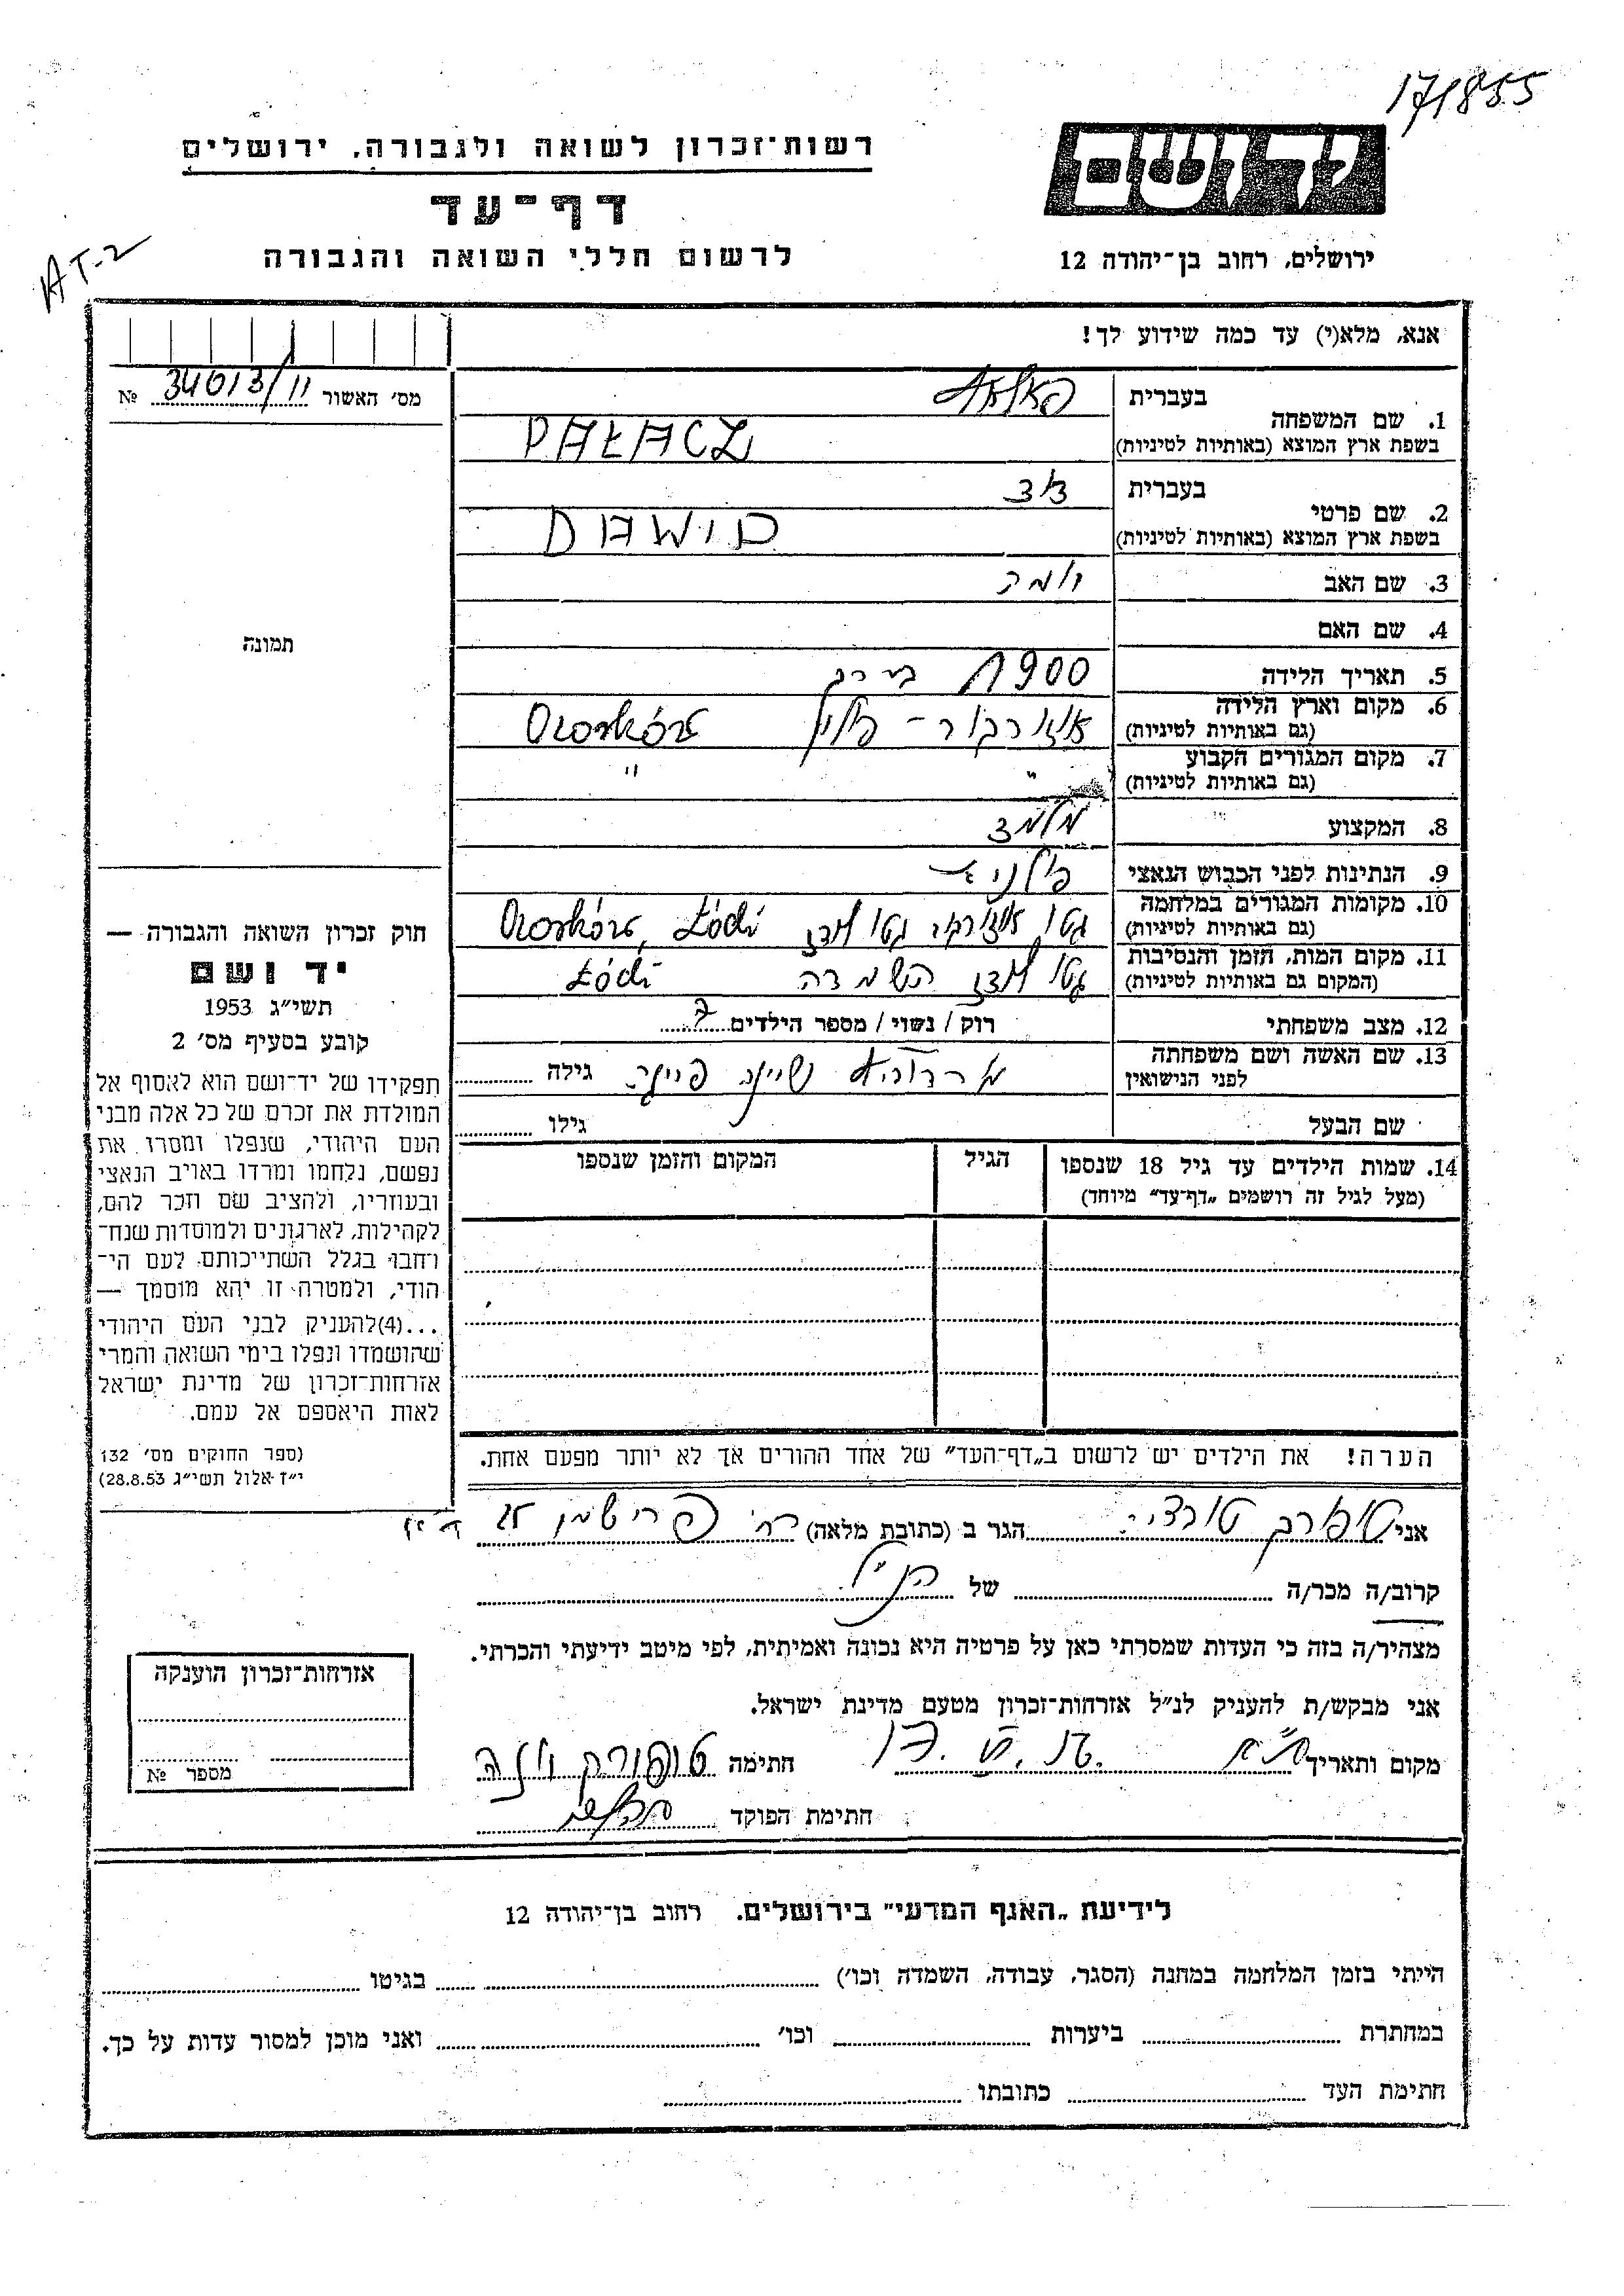 171855
יד ושם
רשות־זכרון לשואה ולגבורה, ירושלים
דף־עד
לרשום חללי השואה והגבורה
ירושלים, רחוב בן־יהודה 12
AT-2
אנא, מלא(י) עד כמה שידוע לך!
מס׳ האשור 34013/11 №
1. שם המשפחה
בעברית
בשפת ארץ המוצא (באותיות לטיניות) PAŁACZ
2. שם פרטי
בעברית דוד
בשפת ארץ המוצא (באותיות לטיניות) DAWID
3. שם האב
4. שם האם
תמונה
5. תאריך הלידה 1900 בערך
6. מקום וארץ הלידה
(גם באותיות לטיניות) אוזורקוב - פולין Ozorków
7. מקום המגורים הקבוע
(גם באותיות לטיניות) " "
8. המקצוע מלמד
9. הנתינות לפני הכבוש הנאצי פולנית
10. מקומות המגורים במלחמה
(גם באותיות לטיניות) גטו אוזורקוב, גטו לודז Ozorków, Łódź
11. מקום המות, הזמן והנסיבות
(המקום גם באותיות לטיניות) גטו לודז השמדה Łódź
12. מצב משפחתי רוק / נשוי / מספר הילדים
13. שם האשה ושם משפחתה
לפני הנישואין גילה
שם הבעל גילו
14. שמות הילדים עד גיל 18 שנספו הגיל המקום והזמן שנספו
(מעל לגיל זה רושמים „דף־עד״ מיוחד)
הערה! את הילדים יש לרשום ב„דף־העד״ של אחד ההורים אך לא יותר מפעם אחת.
חוק זכרון השואה והגבורה —
יד ושם
תשי״ג 1953
קובע בסעיף מס׳ 2
תפקידו של יד־ושם הוא לאסוף אל
המולדת את זכרם של כל אלה מבני
העם היהודי, שנפלו ומסרו את
נפשם, נלחמו ומרדו באויב הנאצי
ובעוזריו, ולהציב שם וזכר להם,
לקהילות, לארגונים ולמוסדות שנח־
רבו בגלל השתייכותם לעם הי־
הודי, ולמטרה זו יהא מוסמך —
...(4)להעניק לבני העם היהודי
שהושמדו ונפלו בימי השואה והמרי
אזרחות־זכרון של מדינת ישראל
לאות היאספם אל עמם.
(ספר החוקים מס׳ 132
י״ז אלול תשי״ג 28.8.53)
אני הגר ב (כתובת מלאה) רח׳ פרישמן
קרוב/ה מכר/ה של הנ״ל
מצהיר/ה בזה כי העדות שמסרתי כאן על פרטיה היא נכונה ואמיתית, לפי מיטב ידיעתי והכרתי.
אני מבקש/ת להעניק לנ״ל אזרחות־זכרון מטעם מדינת ישראל.
מקום ותאריך ת״א חתימה
חתימת הפוקד
אזרחות־זכרון הוענקה
מספר №
לידיעת „האגף המדעי״ בירושלים. רחוב בן־יהודה 12
הייתי בזמן המלחמה במחנה (הסגר, עבודה, השמדה וכו׳) בגיטו
במחתרת ביערות וכו׳ ואני מוכן למסור עדות על כך.
חתימת העד כתובתו